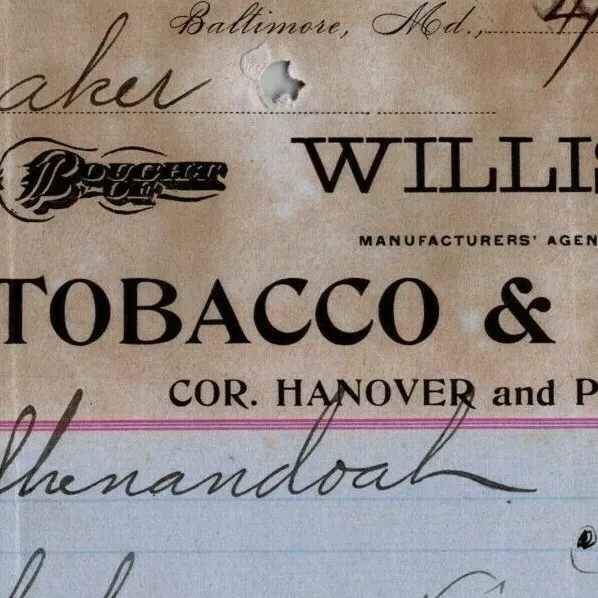 Baltimore, Md.,
aker
BOUGHT OF WILLIS
MANUFACTURERS' AGEN
TOBACCO &
COR. HANOVER and P
Shenandoah
@